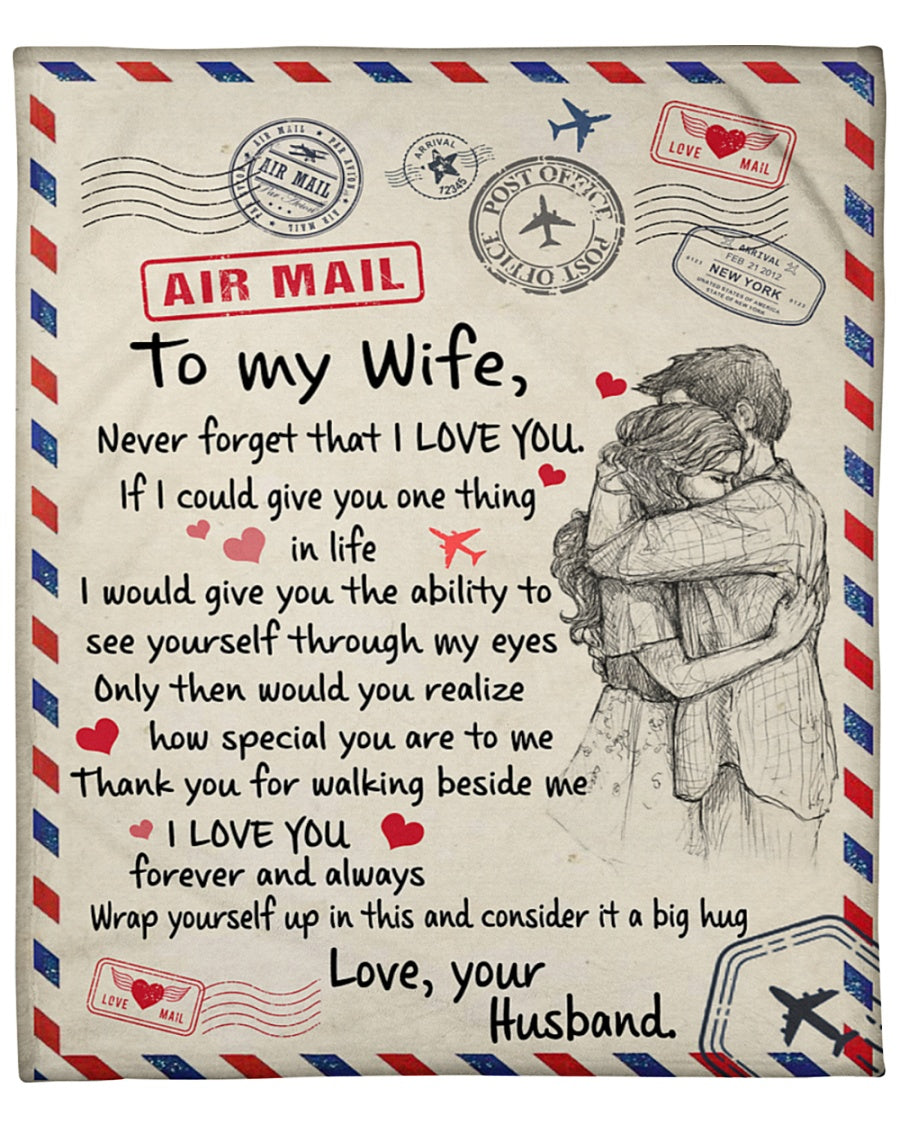 AIR MAIL ★ PAR AVION ★ AIR MAIL ★ PAR AVION
AIR MAIL
Par Avion
ARRIVAL
12345
POST OFFICE
POST OFFICE
LOVE MAIL
ARRIVAL
FEB 21 2012
0123 NEW YORK 0123
UNITED STATES OF AMERICA
STATE OF NEW YORK
AIR MAIL
To my Wife,
Never forget that I LOVE YOU.
If I could give you one thing
in life
I would give you the ability to
see yourself through my eyes
Only then would you realize
how special you are to me
Thank you for walking beside me
I LOVE YOU
forever and always
Wrap yourself up in this and consider it a big hug
Love, your
Husband.
LOVE MAIL